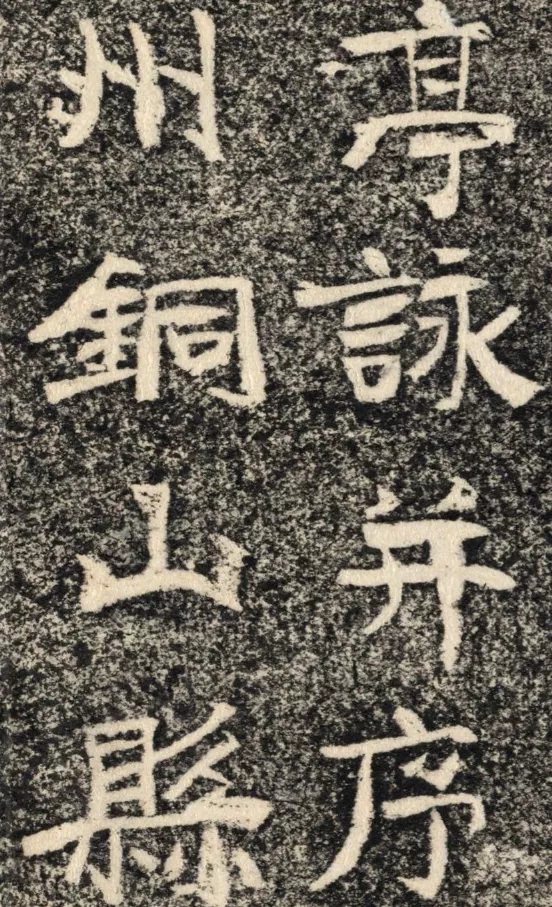 亭詠并序
州銅山縣